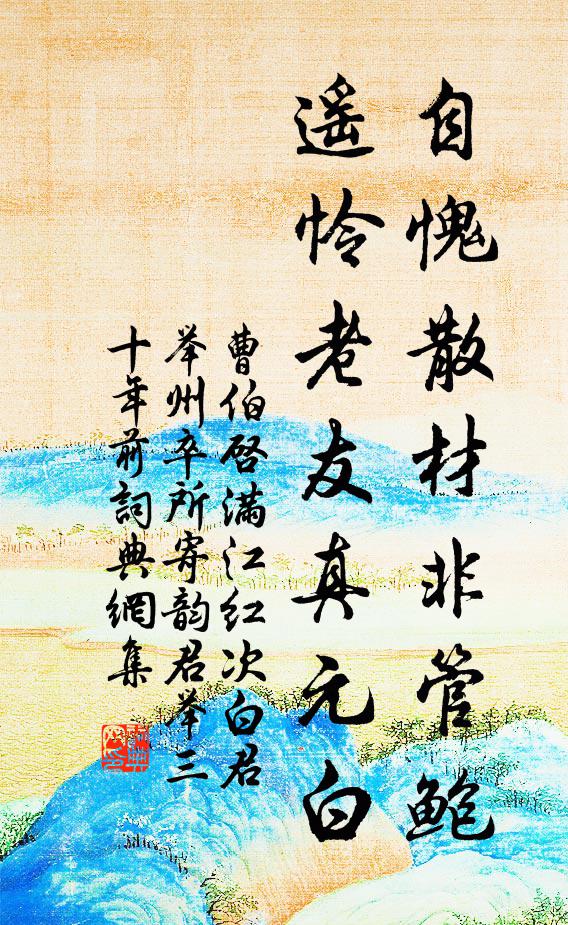 自愧散材非管鲍
遥怜老友真元白
曹伯啓满江红次白君
举州卒所寄韵君举三
十年前詞典網集